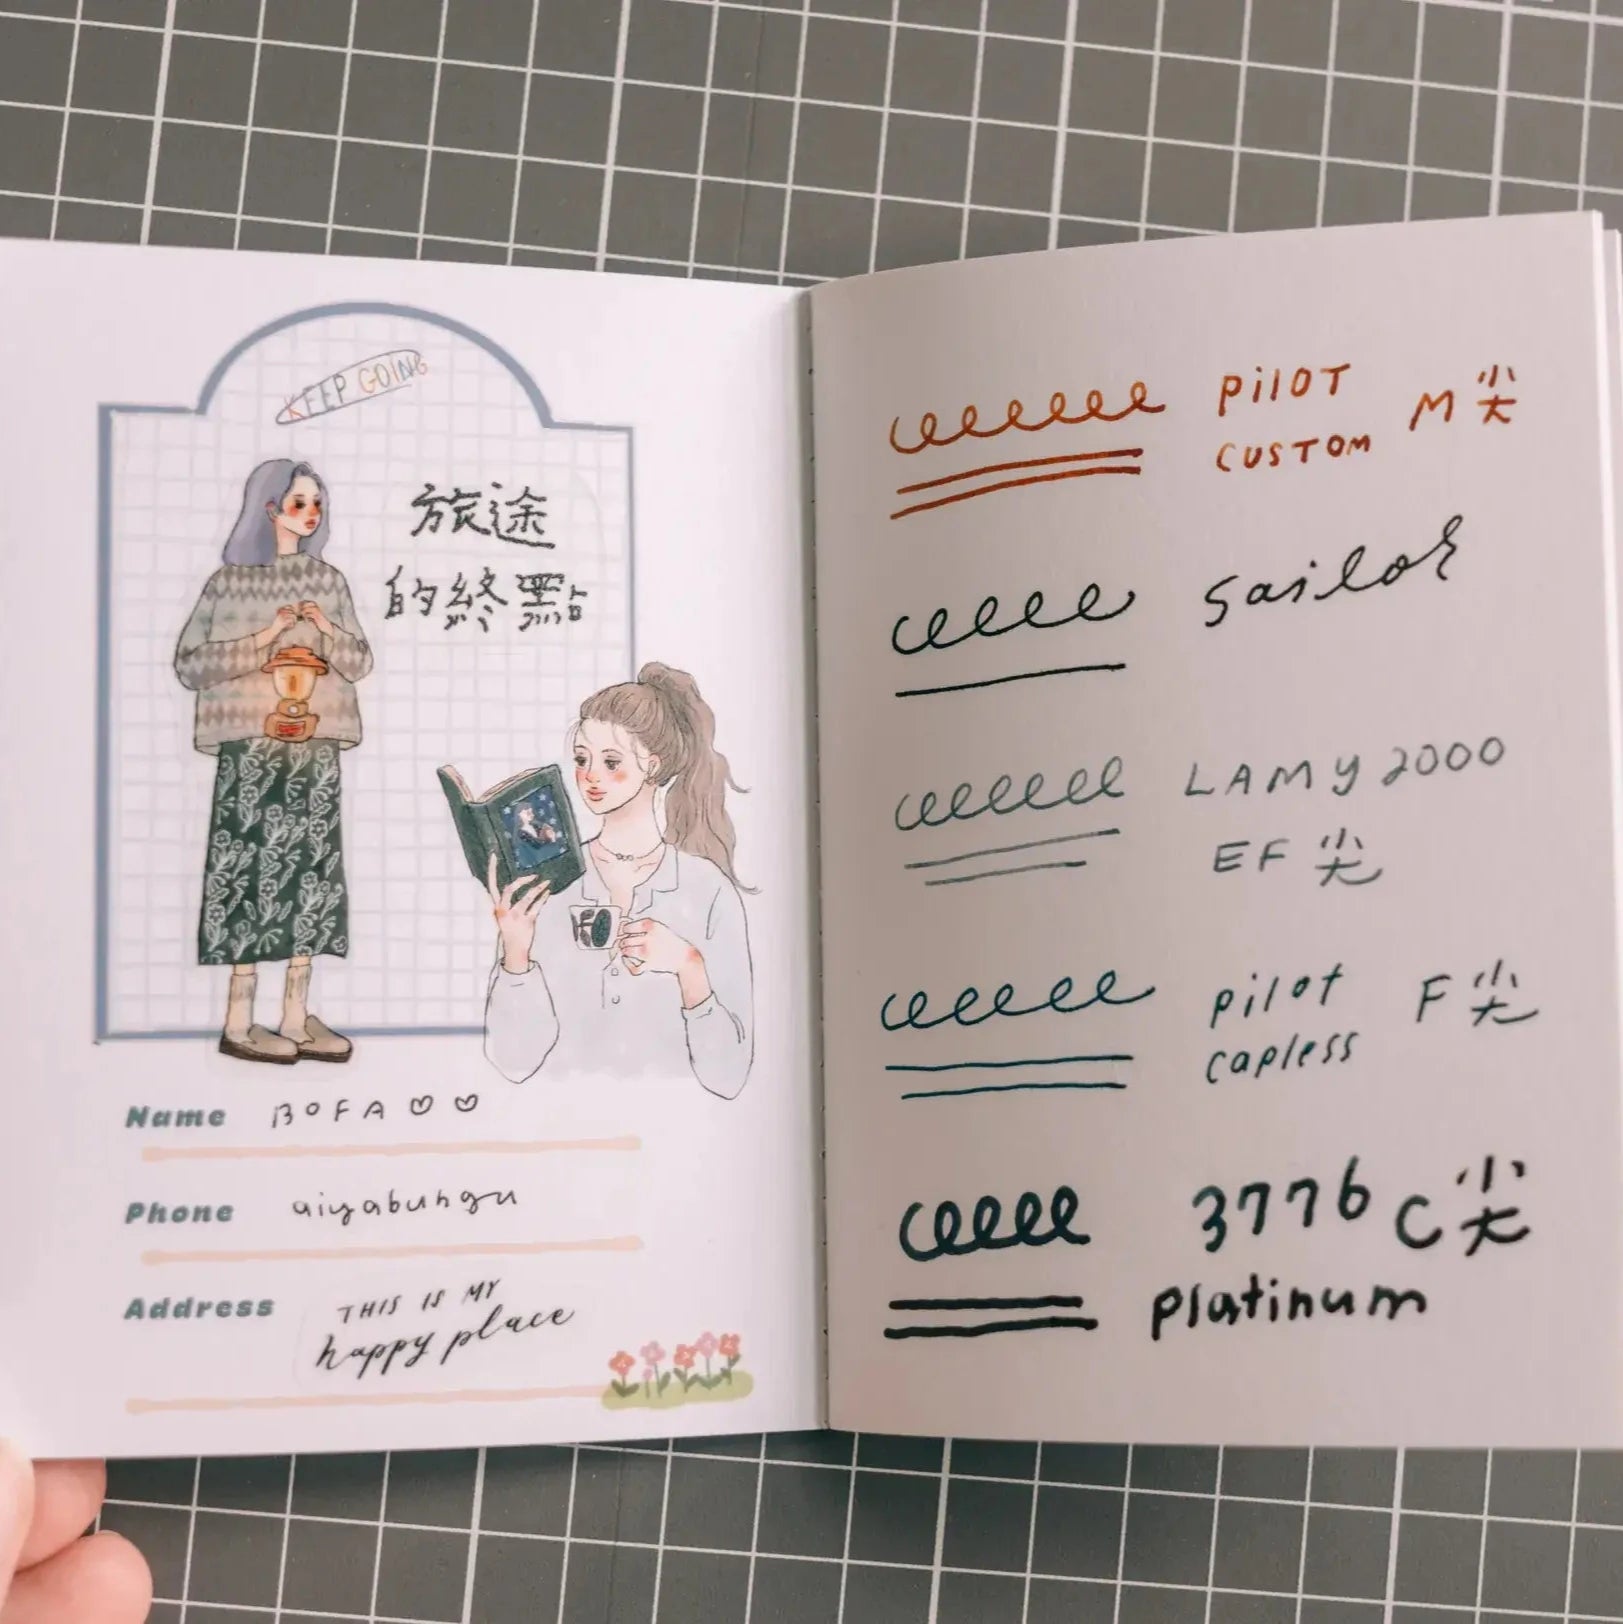 KEEP GOING
旅途
的終點
Name BOFA
Phone aiyabungu
Address THIS IS MY
happy place
PilOT
CUSTOM M尖
Sailor
LAMY 2000
EF 尖
pilot
capless F尖
3776 C尖
platinum